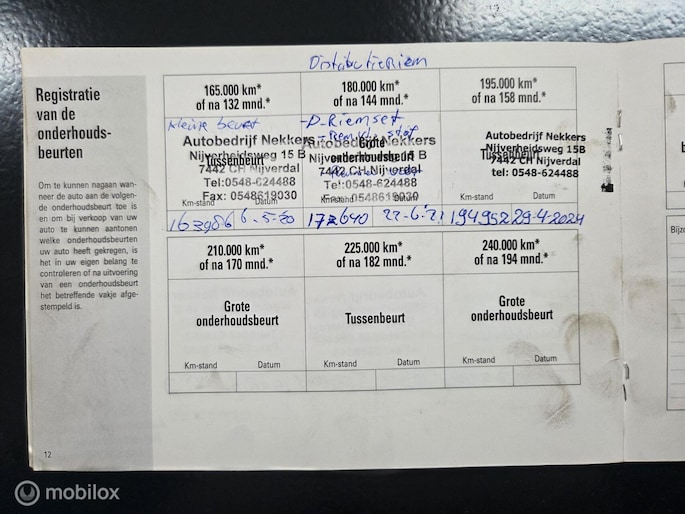 Distributieriem
Registratie
van de
onderhouds-
beurten
Om te kunnen nagaan wan-
neer de auto aan de volgen-
de onderhoudsbeurt toe is
en om bij verkoop van uw
auto te kunnen aantonen
welke onderhoudsbeurten
uw auto heeft gekregen, is
het in uw eigen belang te
controleren of na uitvoering
van een onderhoudsbeurt
het betreffende vakje afge-
stempeld is.
165.000 km*
of na 132 mnd.*
kleine beurt
Autobedrijf Nekkers
Tussenbeurt
Nijverheidsweg 15 B
7442 CH Nijverdal
Tel:0548-624488
Fax: 0548619030
Km-stand Datum
6-5-20
180.000 km*
of na 144 mnd.*
-D-Riemset
Autobedrijf Nekkers
Grote
onderhoudsbeurt
Nijverheidsweg 15 B
7442 CH Nijverdal
Tel:0548-624488
0548619030
Km-stand Datum
22-6-21
195.000 km*
of na 158 mnd.*
Autobedrijf Nekkers
Tussenbeurt
Nijverheidsweg 15B
7442 CH Nijverdal
tel: 0548-624488
Km-stand Datum
194952 29-4-2024
210.000 km*
of na 170 mnd.*
Grote
onderhoudsbeurt
Km-stand Datum
225.000 km*
of na 182 mnd.*
Tussenbeurt
Km-stand Datum
240.000 km*
of na 194 mnd.*
Grote
onderhoudsbeurt
Km-stand Datum
Bijz
12
mobilox